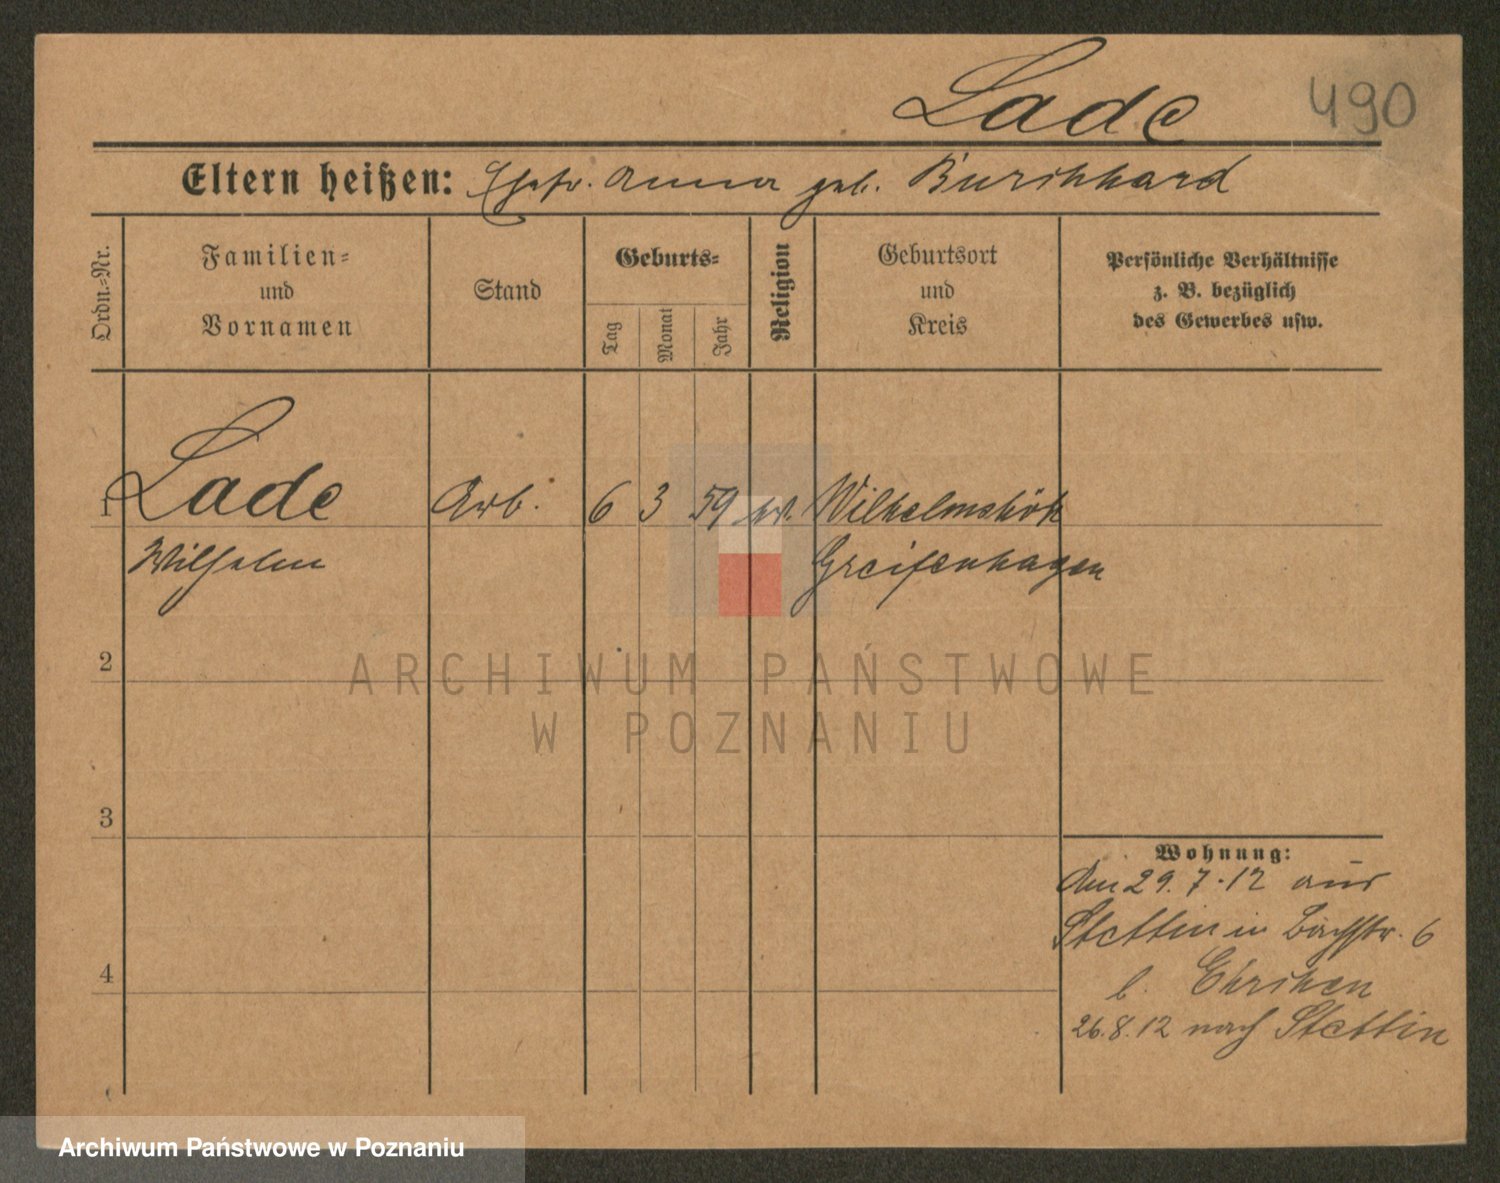 Lade 490
Eltern heißen: Ehefr. Anna geb. Burchhard
Ordn.-Nr.
Familien-
und
Vornamen
Stand
Geburts-
Tag
Monat
Jahr
Religion
Geburtsort
und
Kreis
Persönliche Verhältnisse
z. B. bezüglich
des Gewerbes usw.
1 Lade Arb. 6 3 59 ev. Wilhelmshöh
Wilhelm Greifenhagen
2
ARCHIWUM PAŃSTWOWE
W POZNANIU
3
Wohnung:
Am 29.7.12 aus
Stettin in Bachstr. 6
b.
4
26.8.12 nach Stettin
Archiwum Państwowe w Poznaniu